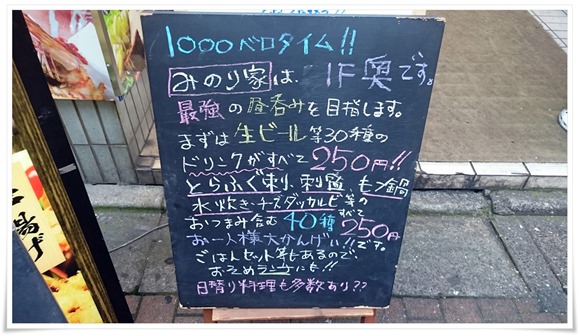 1000ベロタイム!!
みのり家は、1F奥です。
最強の昼呑みを目指します。
まずは生ビール等30種の
ドリンクがすべて250円!!
とらふぐ刺、刺盛、もつ鍋
水炊き・チーズダッカルビ等の
おつまみ含む40種すべて250円
お一人様大かんげい!!です。
ごはんセット等もあるので
おそめランチにも!!
日替り料理も多数あり??
揚げ